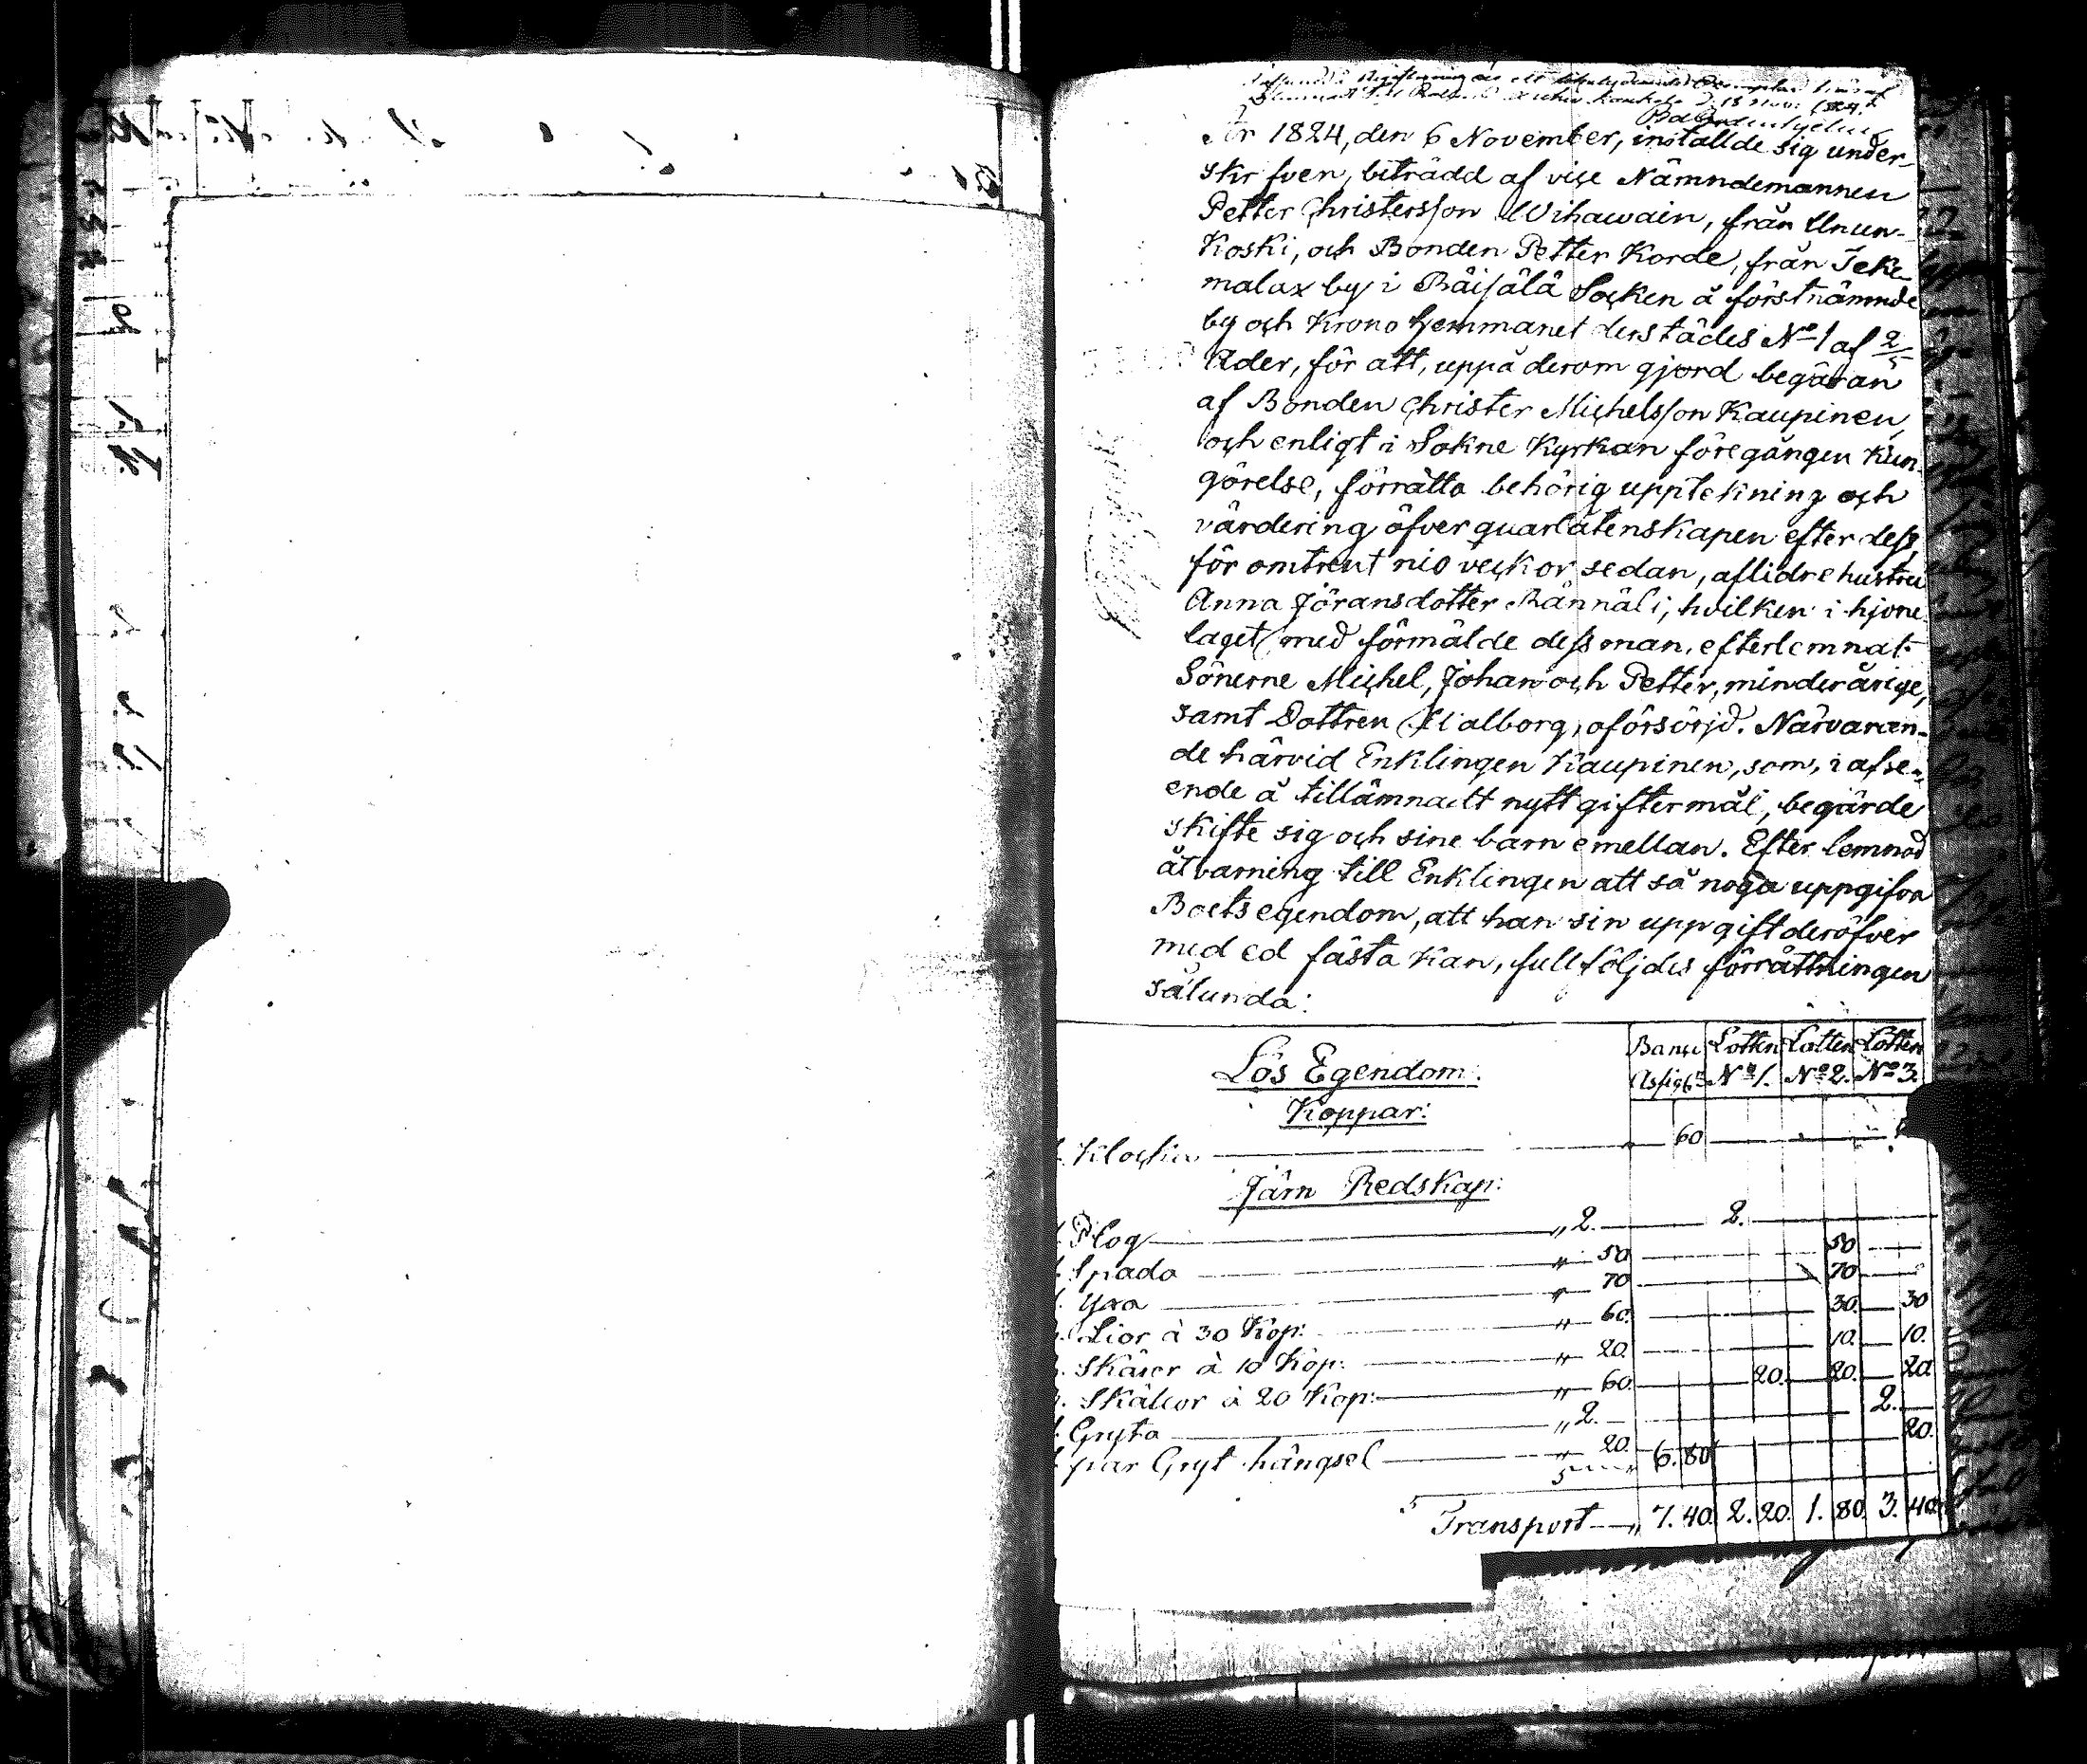 År 1824, den 6 November, inställde sig under-
skrifven, biträdd af vice Nämndemannen
Petter Christersson Wihawain, från Unun-
koski, och Bonden Petter Korde, från Teke-
malax by i Räisälä Socken å förstnämnde
by och Krono Hemmanet derstädes No 1 af 2/5
Ader, för att, uppå derom gjord begäran
af Bonden Christer Michelsson Kaupinen,
och enligt i Sokne Kyrkan föregången Kun-
görelse, förrätta behörig uppteckning och
värdering öfver quarlåtenskapen efter dess,
för omtrent nio veckor sedan, aflidne hustru
Anna Jöransdotter Rännäli, hvilken i hjone-
laget med förmälde dess man, efterlemnat
Sönerne Michel, Johan och Petter, minderårige,
samt Dottren Walborg, oförsörjd. Närvaran-
de härvid Enklingen Kaupinen, som, i afse-
ende å tillämnadt nytt giftermål, begärde
skifte sig och sine barn emellan. Efter lemnad
åtvarning till Enklingen att så noga uppgifva
Boets egendom, att han sin uppgift deröfver
med ed fästa kan, fullföljdes förrättningen
sålunda:
Lös Egendom. Banco Assig: Lotten No 1. Lotten No 2. Lotten No 3.
Koppar:
Klocka " 60
Järn Redskap:
1. Plog " 2. 2.
1. Spada " 50 50
1. Yxa " 70 70
2. Lior à 30 Kop: " 60. 30. 30
2. Skäror à 10 Kop: " 20. 10. 10.
3. à 20 Kop: " 60. 20. 20. 20
1. Gryta " 2. 2.
1 par Gryt hängsel " 20. 6. 80 20.
Transport " 7. 40. 2. 20. 1. 80. 3. 40